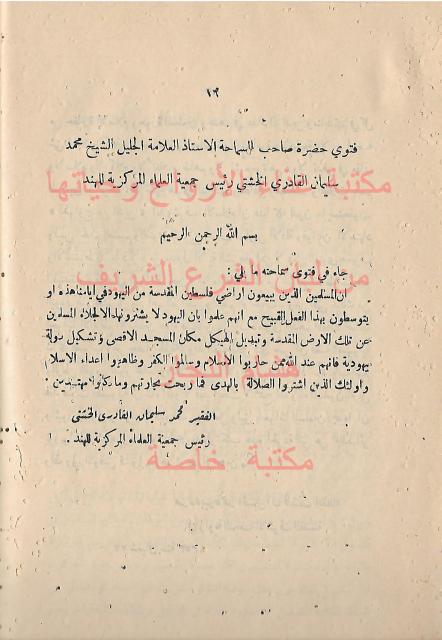 ١٣
فتوي حضرة صاحب السماحة الاستاذ العلامة الجليل الشيخ محمد
سليمان القادري الخشتي رئيس جمعية العلماء المركزية للهند
مكتبة غذاء الأرواح وحياتها
بسم الله الرحمن الرحيم
جاء في فتوي سماحته ما يلي :
من لبنان الفرع الشريف
ان المسلمين الذين يبيعون اراضي فلسطين المقدسة من اليهود في ايامنا هذه او
يتوسطون بهذا الفعل القبيح مع انهم علموا بان اليهود لا يشترونها الا لاجلاء المسلمين
عن تلك الارض المقدسة وتبديل الهيكل مكان المسجد الاقصى وتشكيل دولة
يهودية فانهم عند الله ممن حاربوا الاسلام وسالموا الكفر وظاهروا اعداء الاسلام
هشام النجار
واولئك الذين اشتروا الضلالة بالهدى فما ربحت تجارتهم وما كانوا مهتدين .
الفقير محمد سليمان القادري الخشتي
رئيس جمعية العلماء المركزية للهند .
مكتبة خاصة